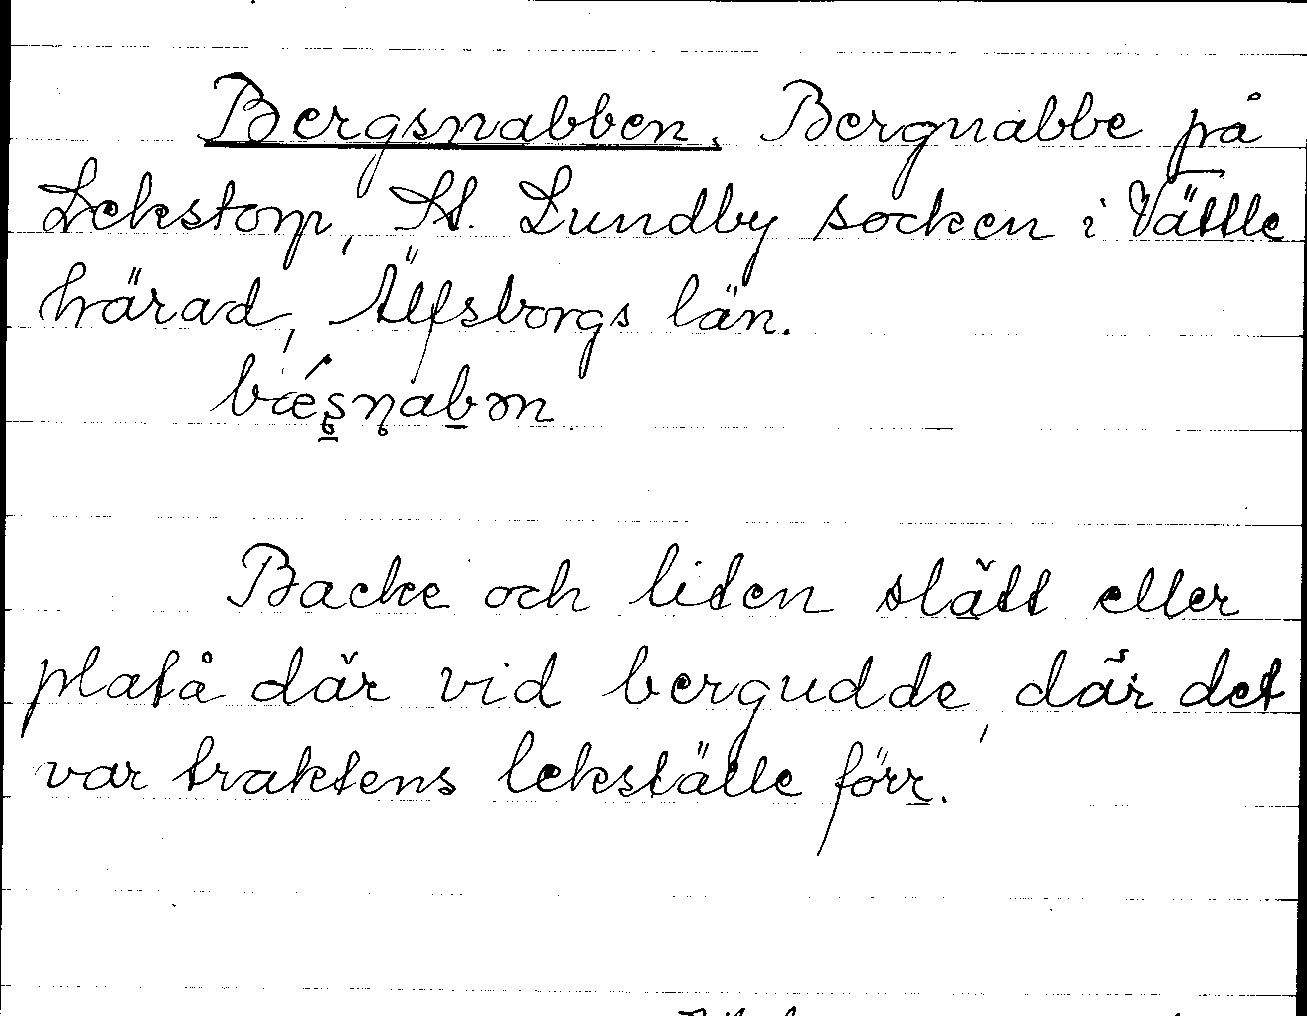 Bergsnabben. Bergnabbe på
Lekstorp, St. Lundby socken i Vättle
härad, Älfsborgs län.
bǽs̱nab̲ən
Backe och liten slätt eller
platå där vid bergudde, där det
var traktens lekställe förr.